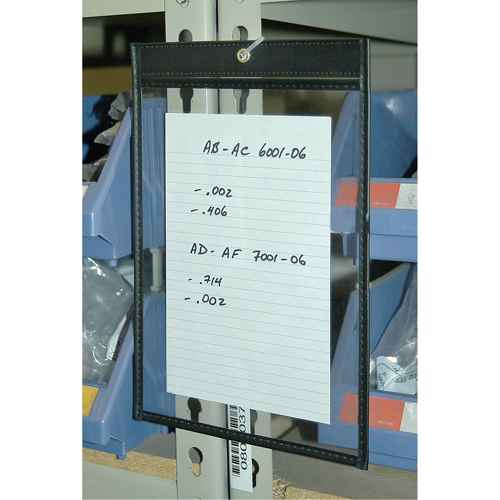 AB-AC 6001-06
- .002
- .406
AD- AF 7001-06
- .714
- .002